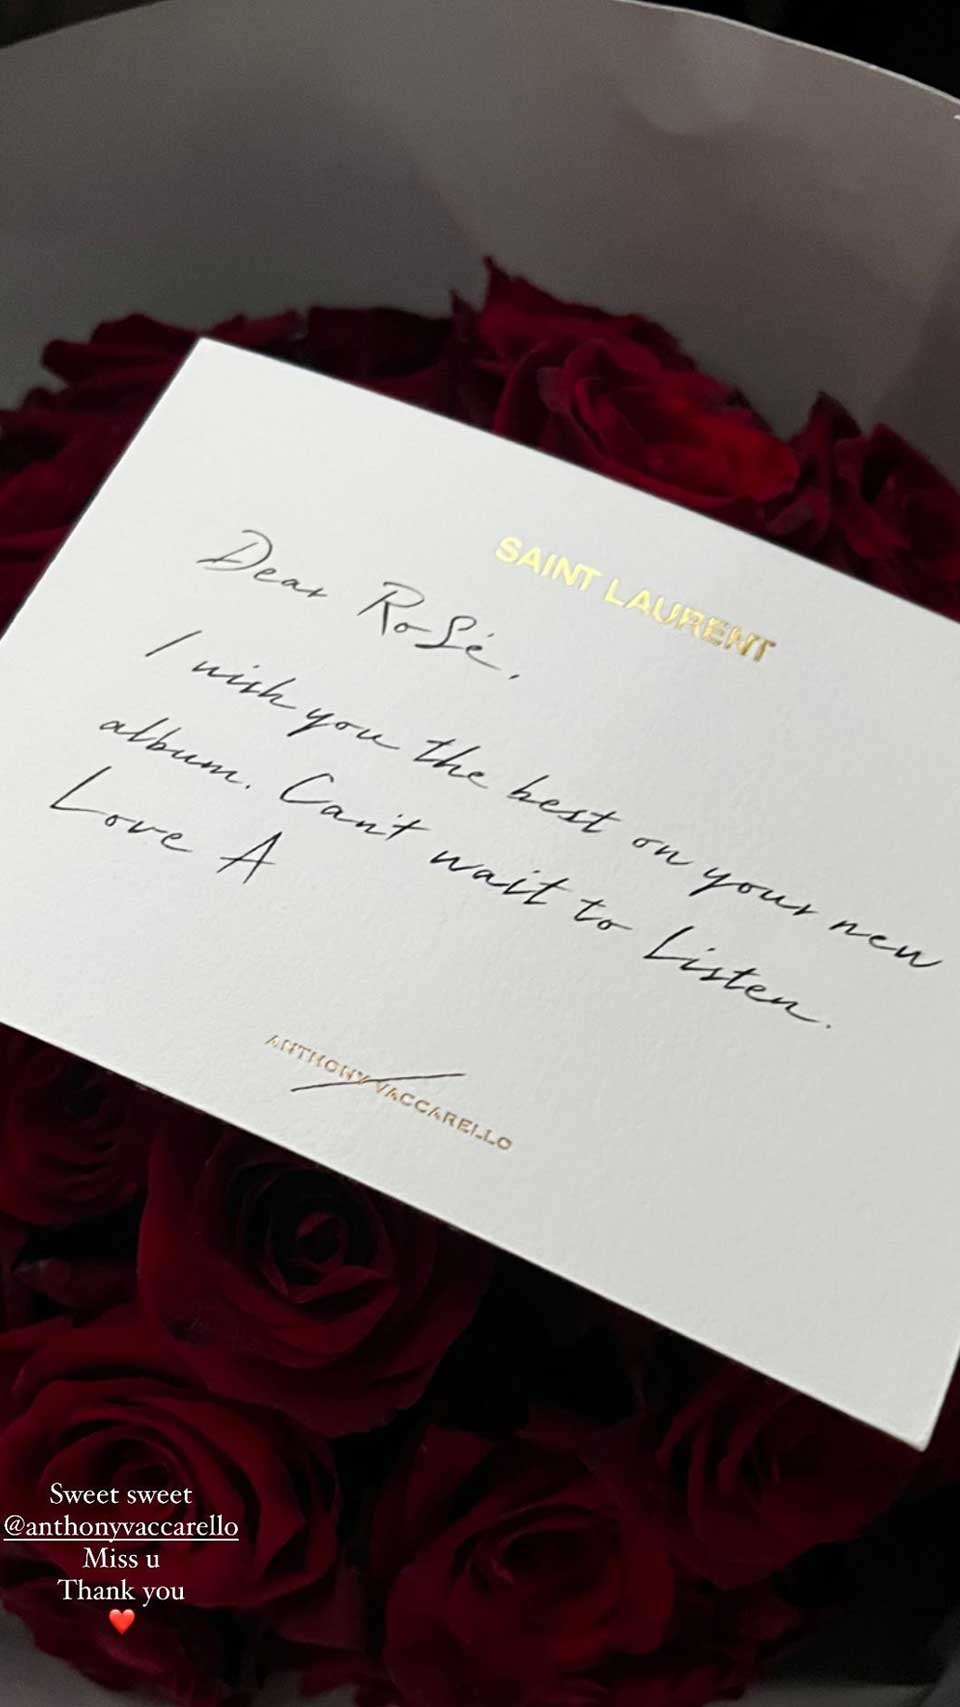 SAINT LAURENT
Dear RoSé,
I wish you the best on your new
album. Can't wait to listen.
Love A
ANTHONY VACCARELLO
Sweet sweet
@anthonyvaccarello
Miss u
Thank you
❤️